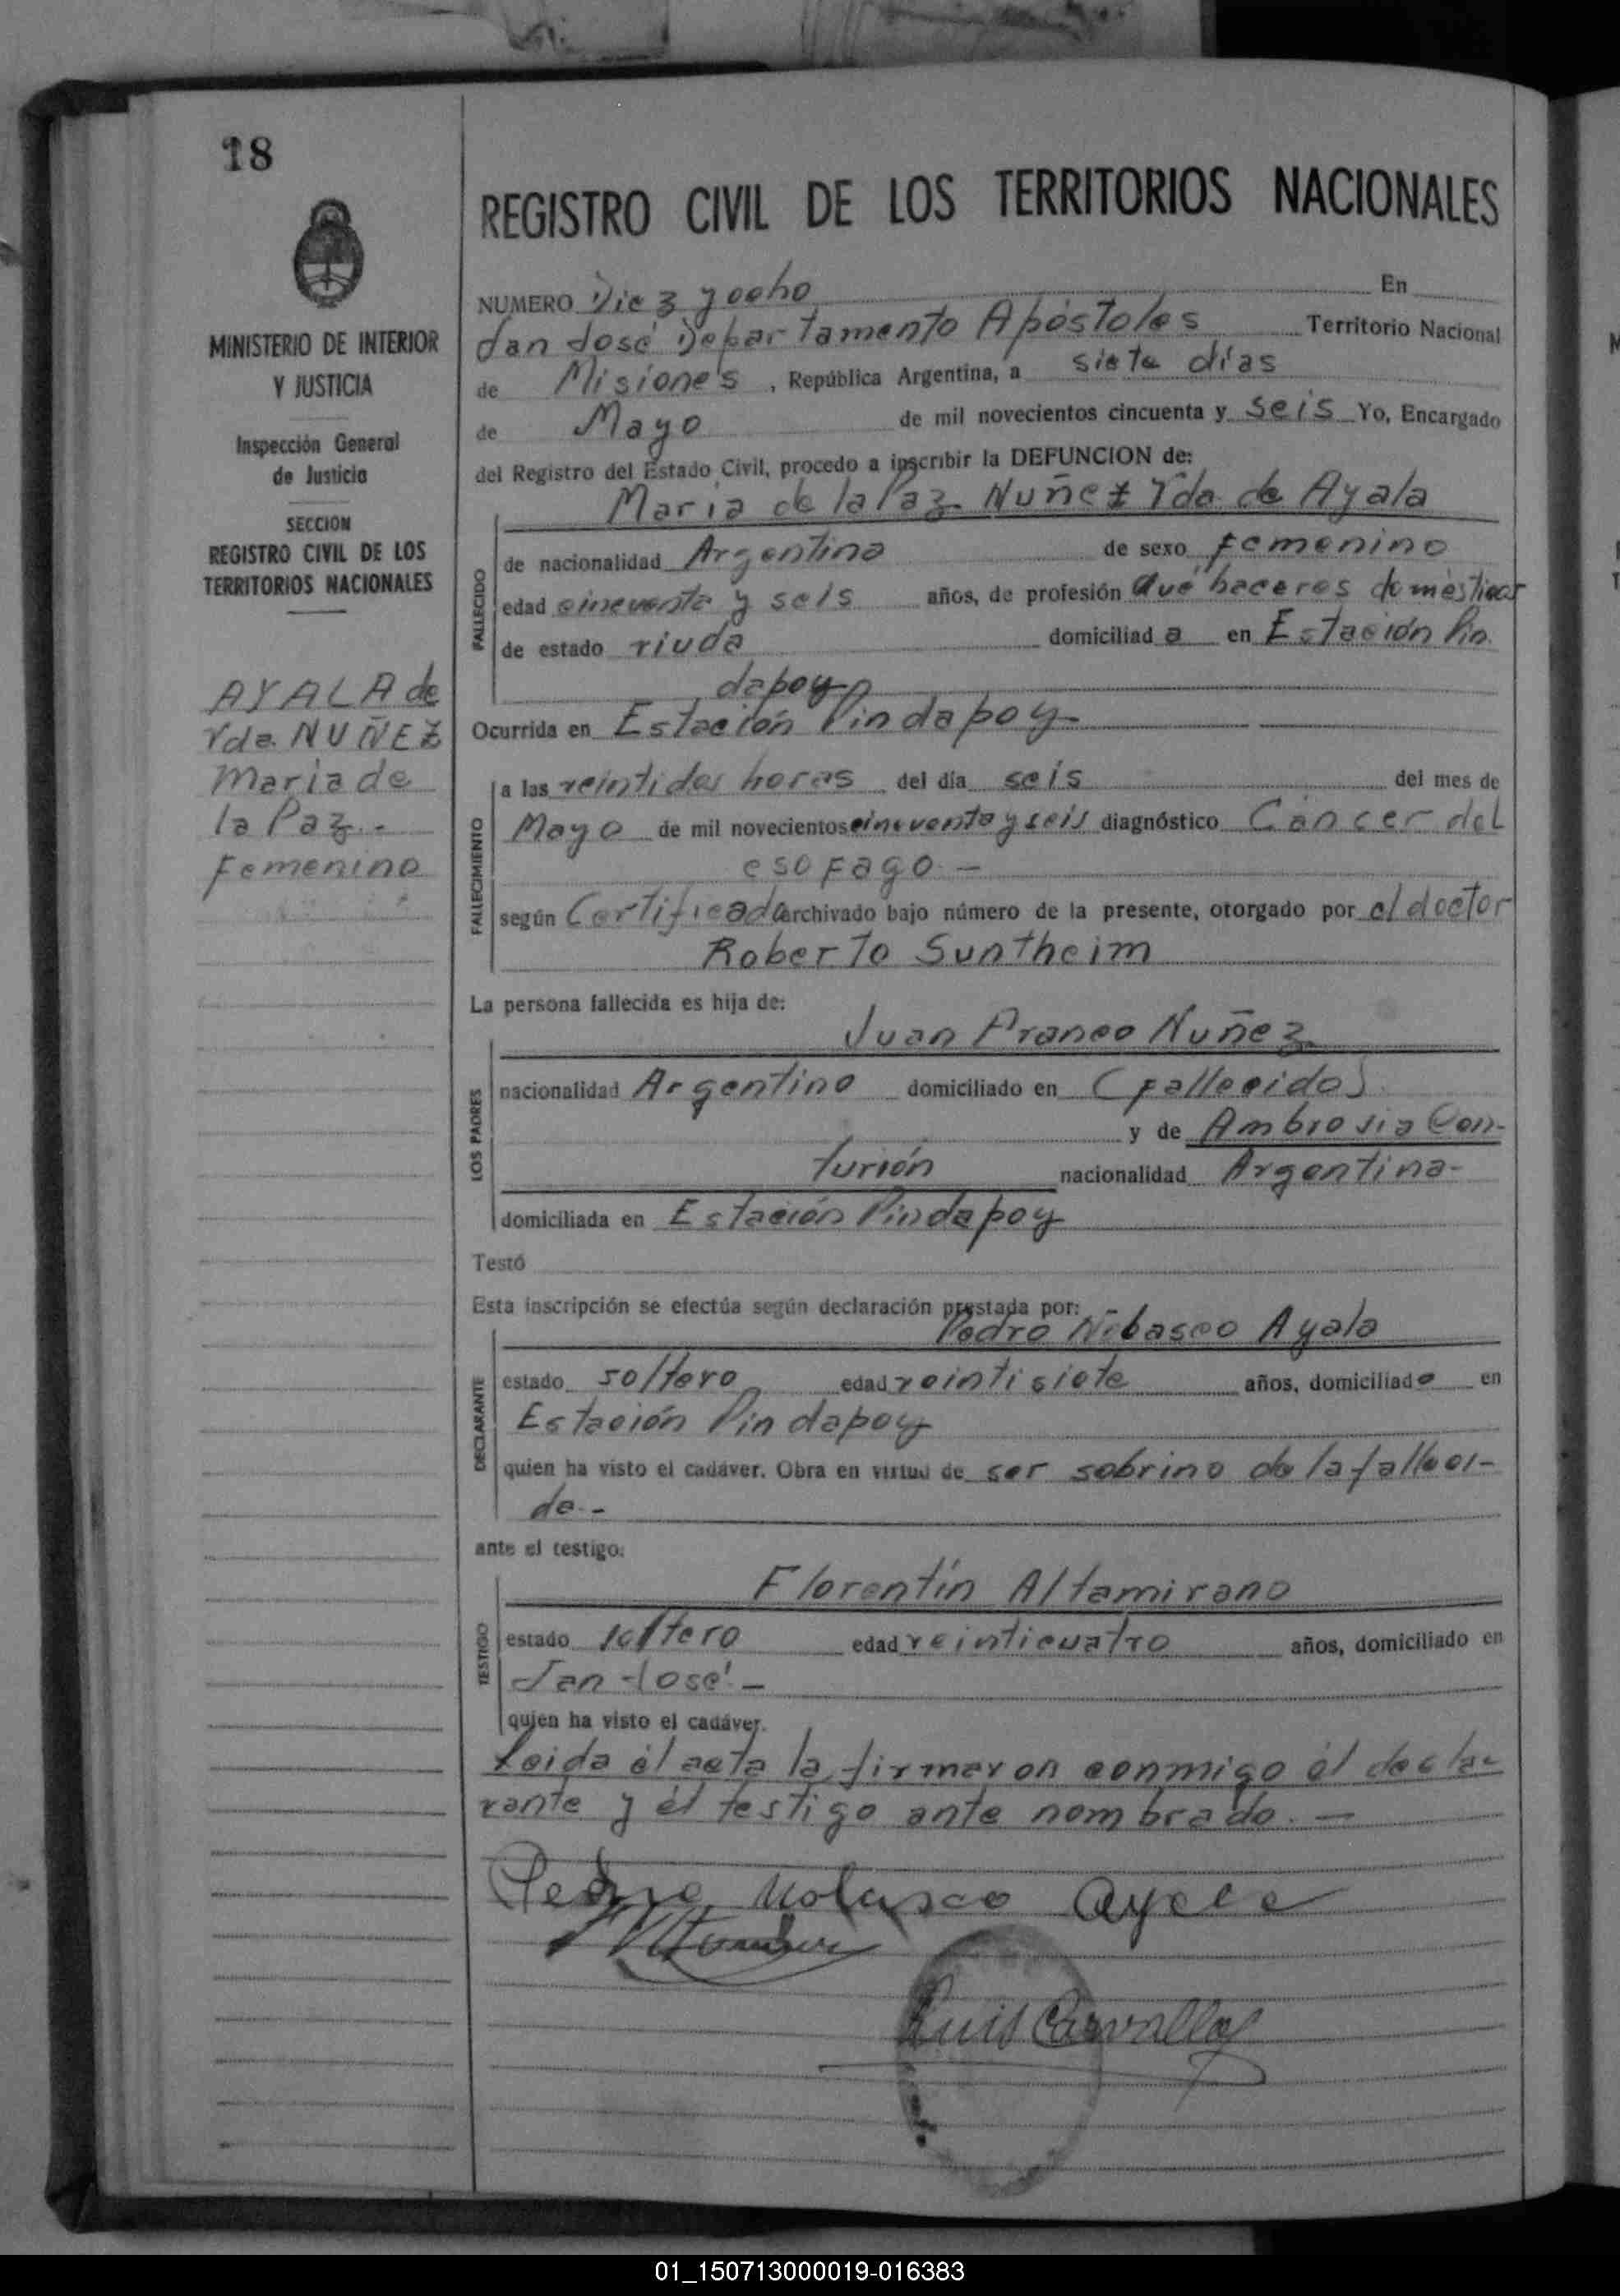 18
MINISTERIO DE INTERIOR
Y JUSTICIA
Inspección General
de Justicia
SECCION
REGISTRO CIVIL DE LOS
TERRITORIOS NACIONALES
AYALA de
Vda. NUÑEZ
Maria de
la Paz.-
Femenino
REGISTRO CIVIL DE LOS TERRITORIOS NACIONALES
NUMERO Diez y ocho En
San José Departamento Apóstoles Territorio Nacional
de Misiones, República Argentina, a siete días
de Mayo de mil novecientos cincuenta y seis Yo, Encargado
del Registro del Estado Civil, procedo a inscribir la DEFUNCION de:
Maria de la Paz Nuñez Vda. de Ayala
FALLECIDO
de nacionalidad Argentina de sexo Femenino
edad cincuenta y seis años, de profesión Qué haceres domésticos
de estado viuda domiciliad a en Estación Pin
dapoy
Ocurrida en Estación Pindapoy
FALLECIMIENTO
a las veintidos horas del día seis del mes de
Mayo de mil novecientos cincuenta y seis diagnóstico Cáncer del
esofago -
según Certificado archivado bajo número de la presente, otorgado por el doctor
Roberto Suntheim
La persona fallecida es hija de:
Juan Franco Nuñez
LOS PADRES
nacionalidad Argentino domiciliado en (Fallecido)
y de Ambrosia Cen-
turión nacionalidad Argentina-
domiciliada en Estación Pindapoy
Testó
Esta inscripción se efectúa según declaración prestada por:
Pedro Nolasco Ayala
DECLARANTE
estado soltero edad veintisiete años, domiciliado en
Estación Pindapoy
quien ha visto el cadáver. Obra en virtud de ser sobrino de la falleci-
da.-
ante el testigo:
Florentín Altamirano
TESTIGO
estado soltero edad veinticuatro años, domiciliado en
San José.-
quien ha visto el cadáver.
Leida él acta la firmaron conmigo él decla-
rante y él testigo ante nombrado.-
Pedro Nolasco Ayala
Luis Carvallo
01_150713000019-016383